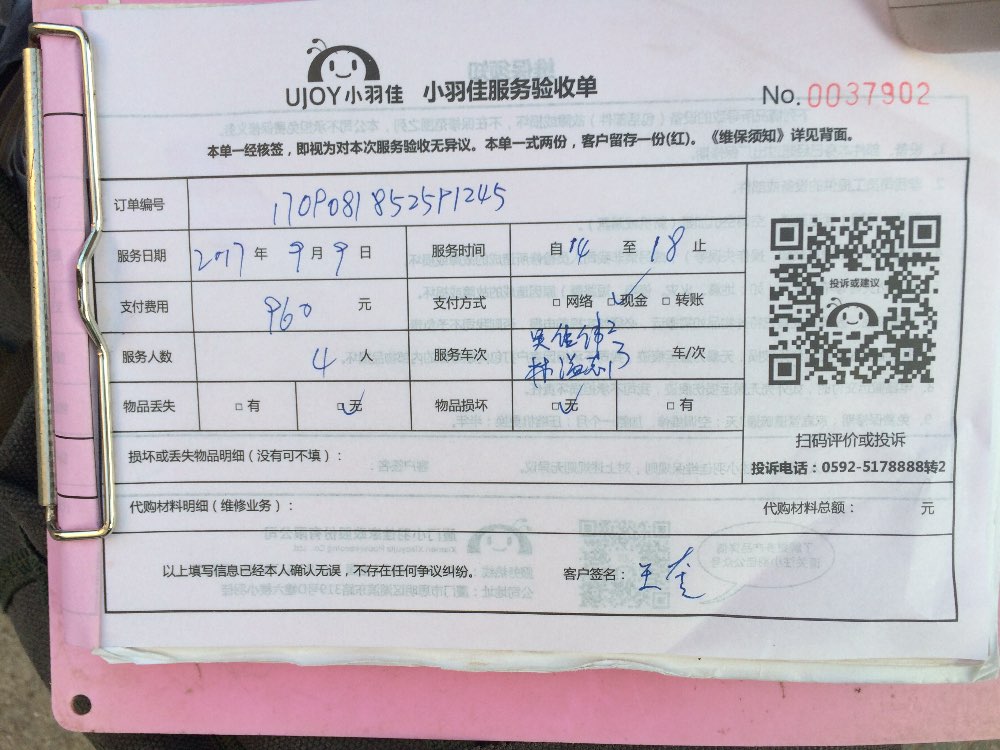 UJOY小羽佳 小羽佳服务验收单 No. 0037902
本单一经核签，即视为对本次服务验收无异议。本单一式两份，客户留存一份(红)。《维保须知》详见背面。
订单编号 170908185251245
服务日期 2017 年 9 月 9 日 服务时间 自 14 至 18 止
支付费用 960 元 支付方式 □ 网络 □ 现金 □ 转账
服务人数 4 人 服务车次 2 3 车/次
物品丢失 □ 有 □ 无 物品损坏 □ 无 □ 有
投诉或建议
扫码评价或投诉
投诉电话：0592-5178888转2
损坏或丢失物品明细（没有可不填）：
代购材料明细（维修业务）： 代购材料总额： 元
以上填写信息已经本人确认无误，不存在任何争议纠纷。 客户签名： 王